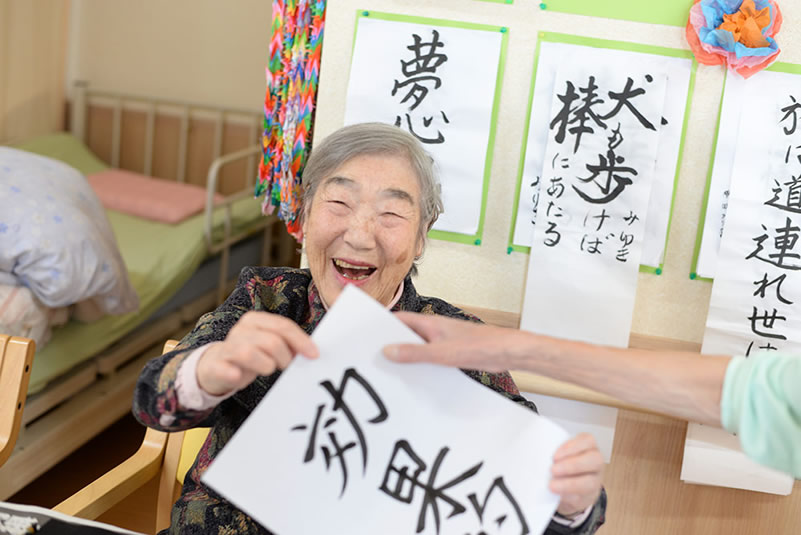 夢
心
犬も歩
けば
棒
にあたる
みゆき
旅に道連れ世は
効果